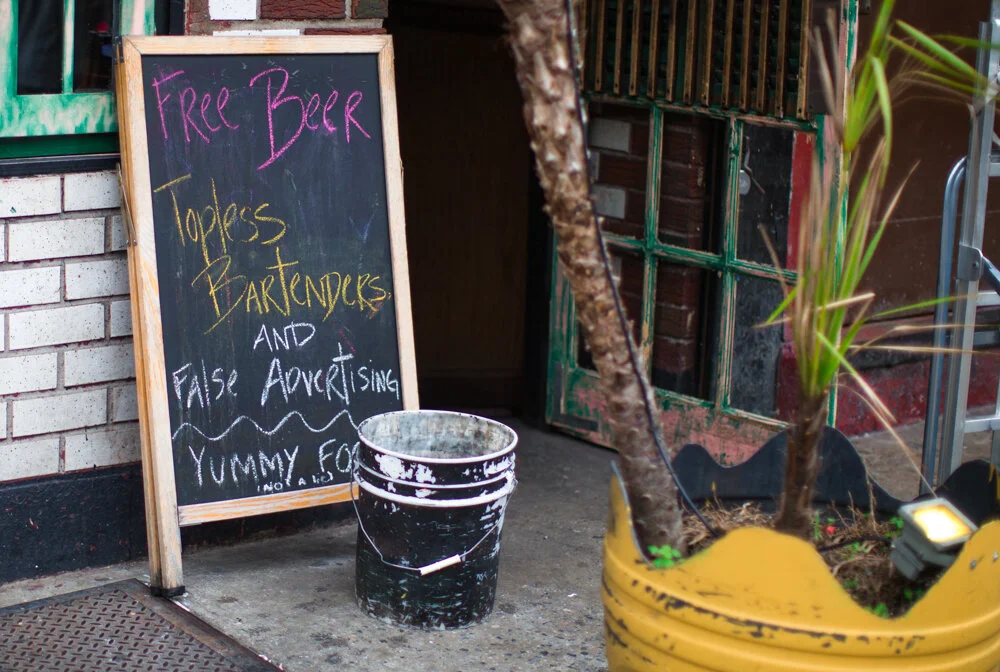 Free Beer
Topless
Bartenders
AND
False Advertising
YUMMY
(NOT A